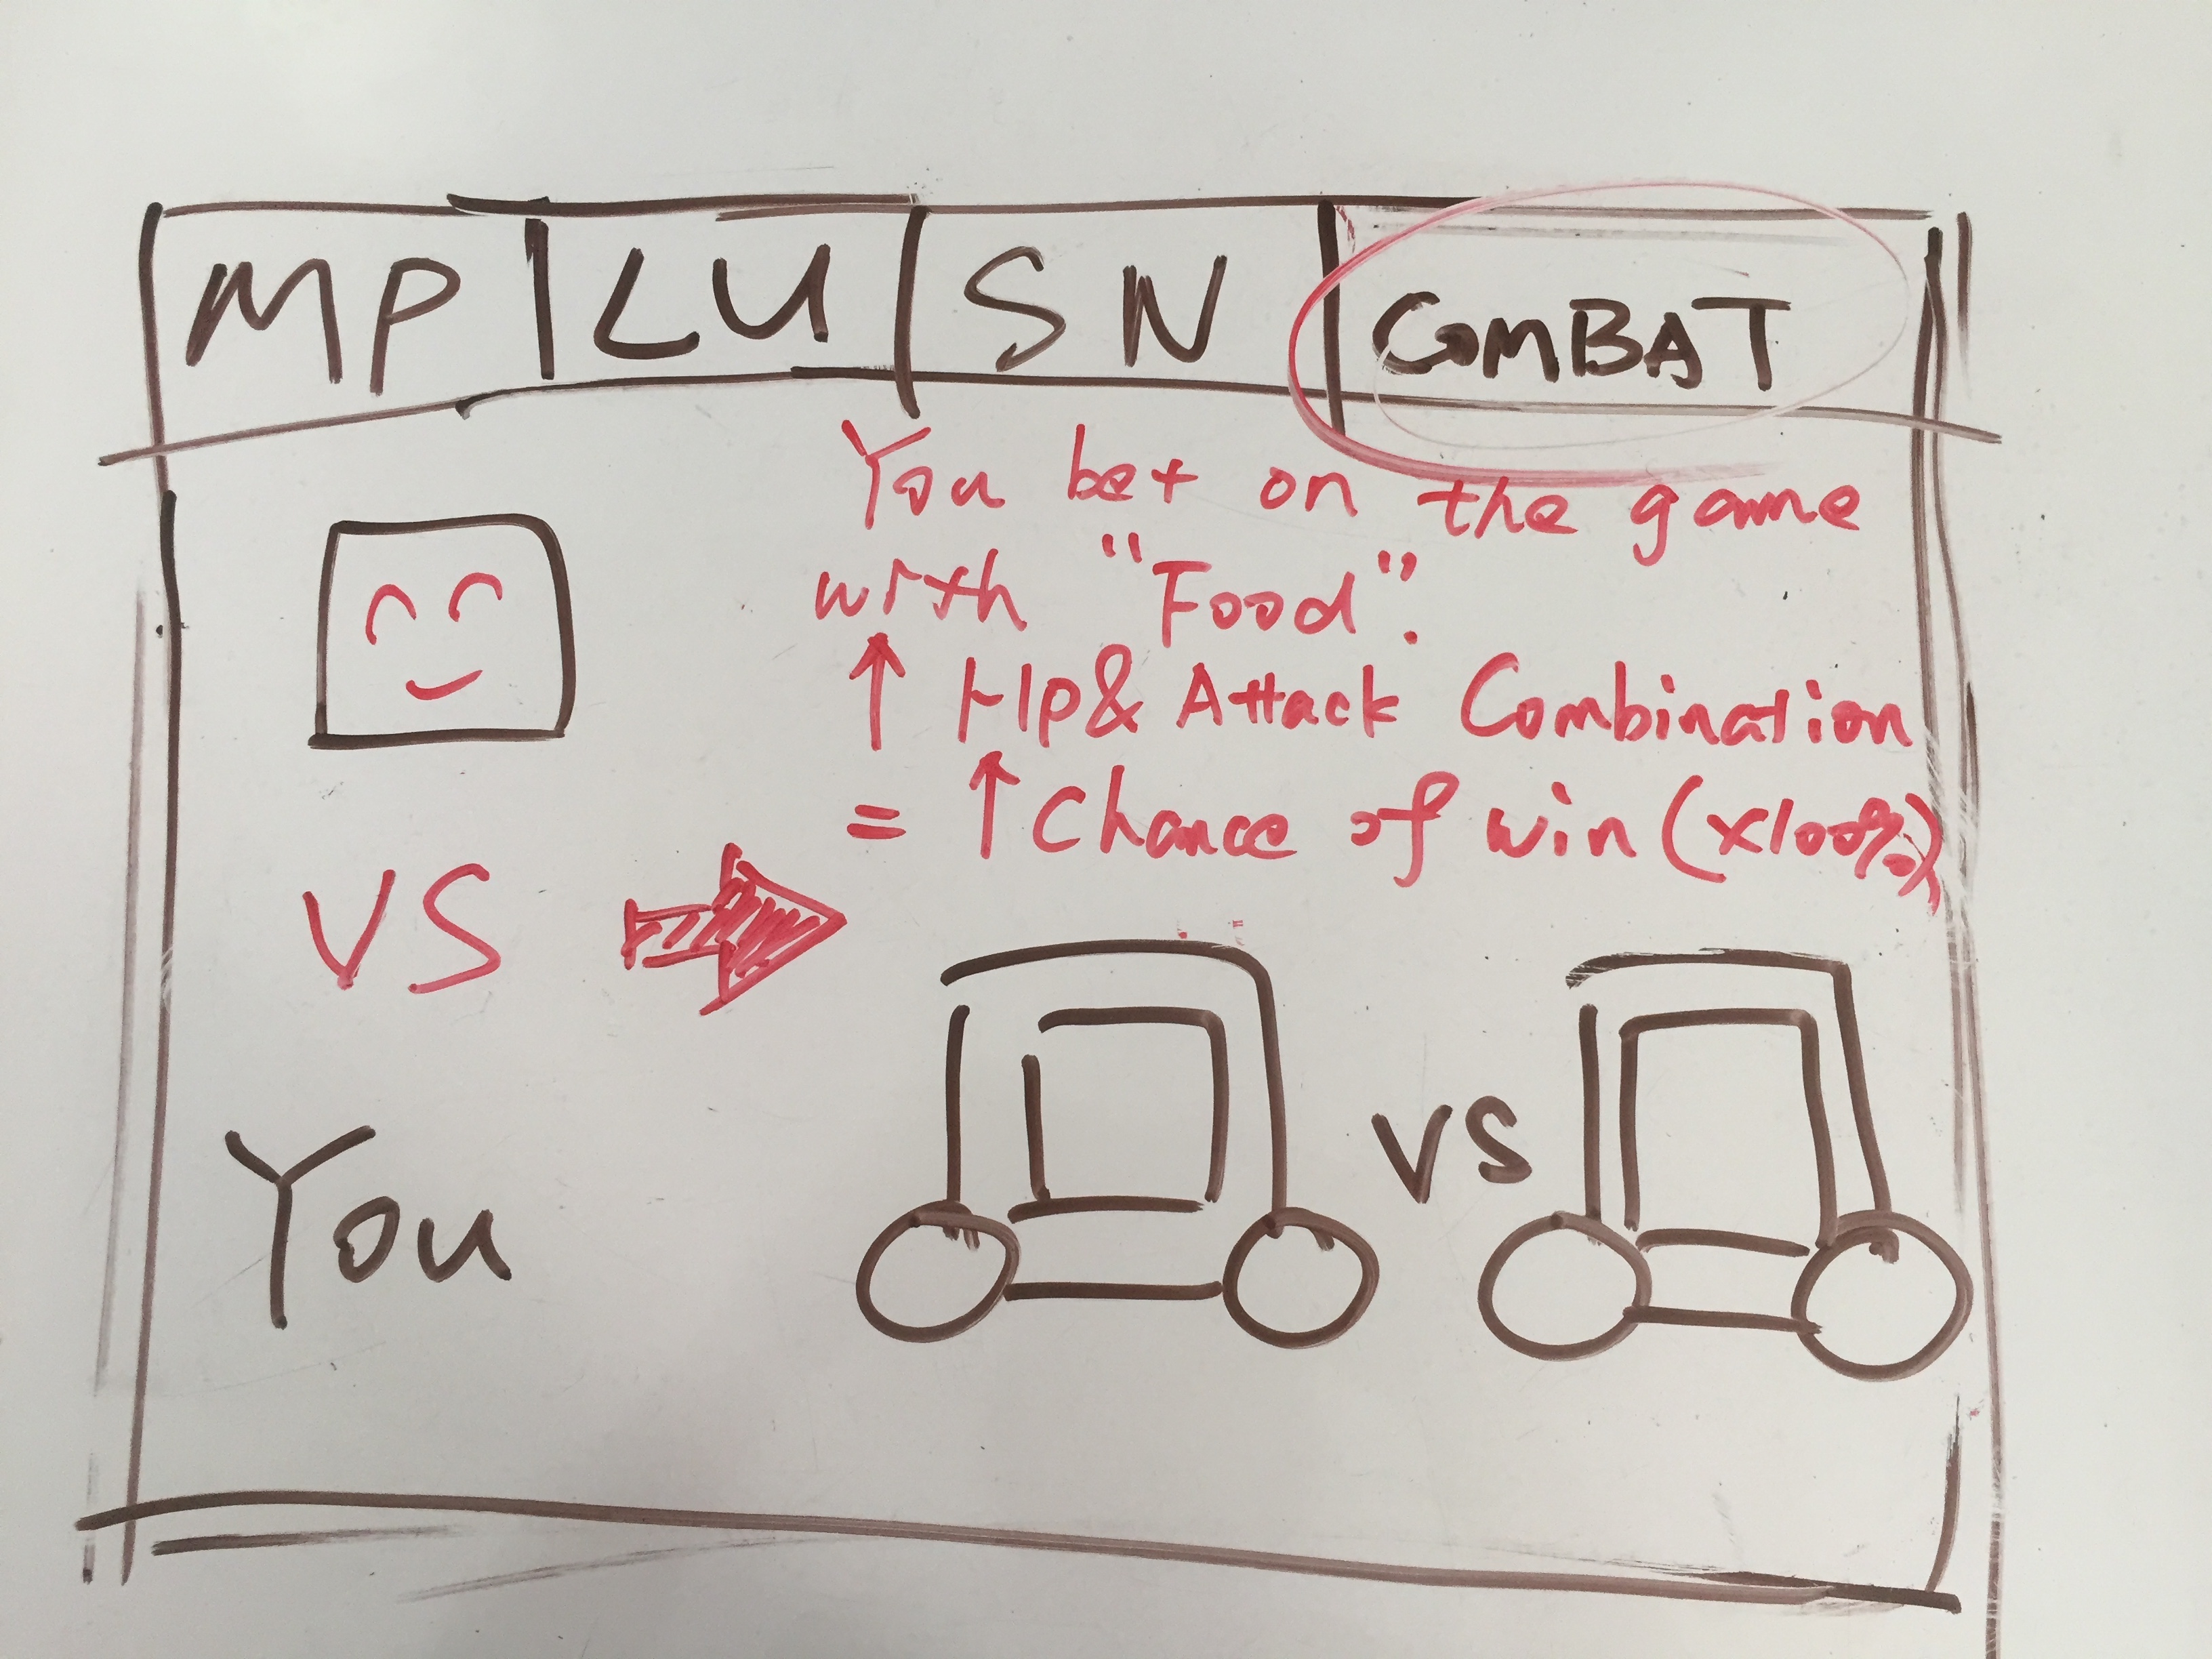 MP LU SN COMBAT
You bet on the game
with "Food".
↑ Hp & Attack Combination
= ↑ Chance of win (x100%)
VS
You
VS